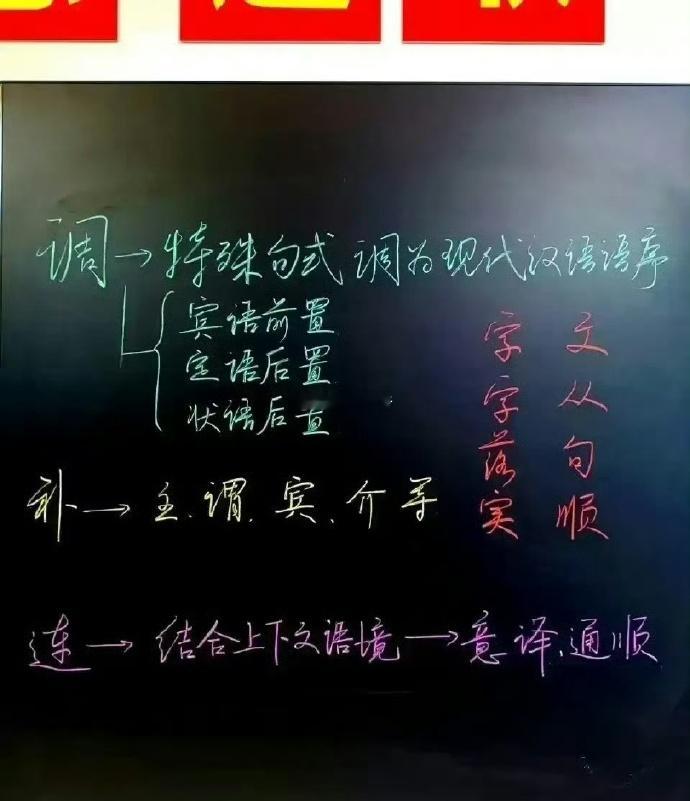 调→特殊句式 调为现代汉语语序
宾语前置
定语后置
状语后直
补→主、谓、宾、介等
连→结合上下文语境→意译、通顺
字字落实
文从句顺